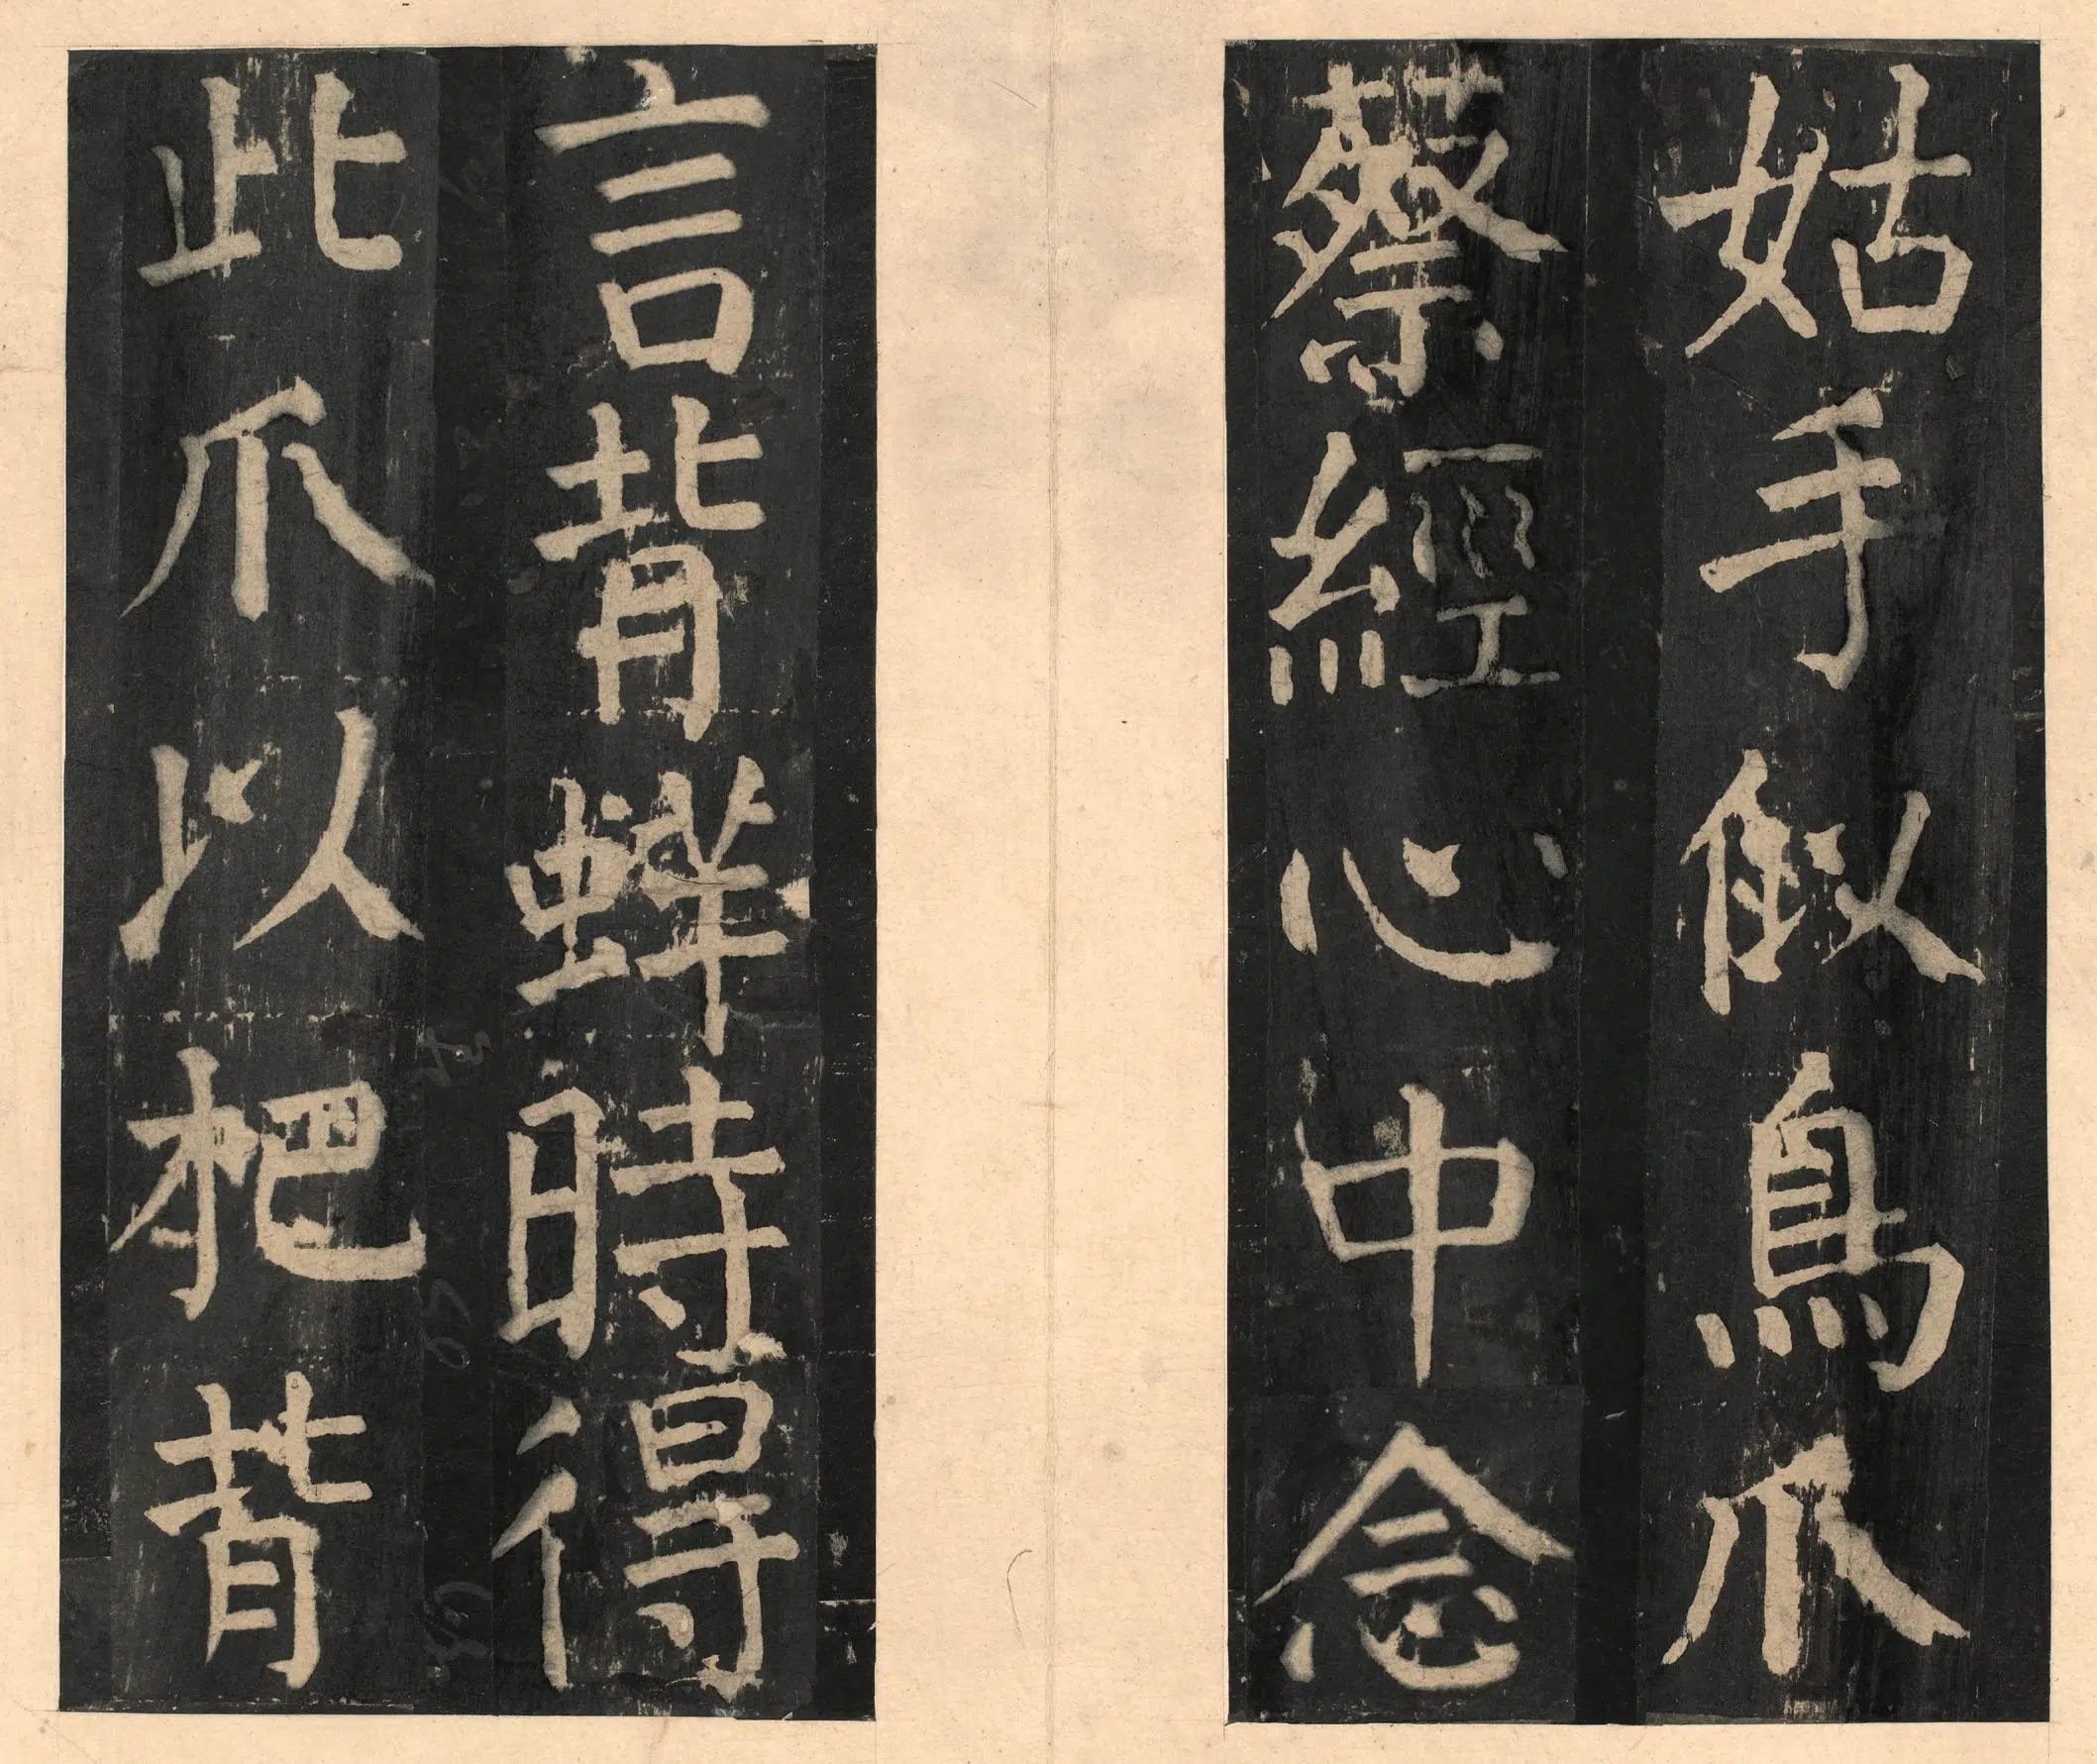 姑手似鳥爪
蔡經心中念
言背蛘時得
此爪以杷背